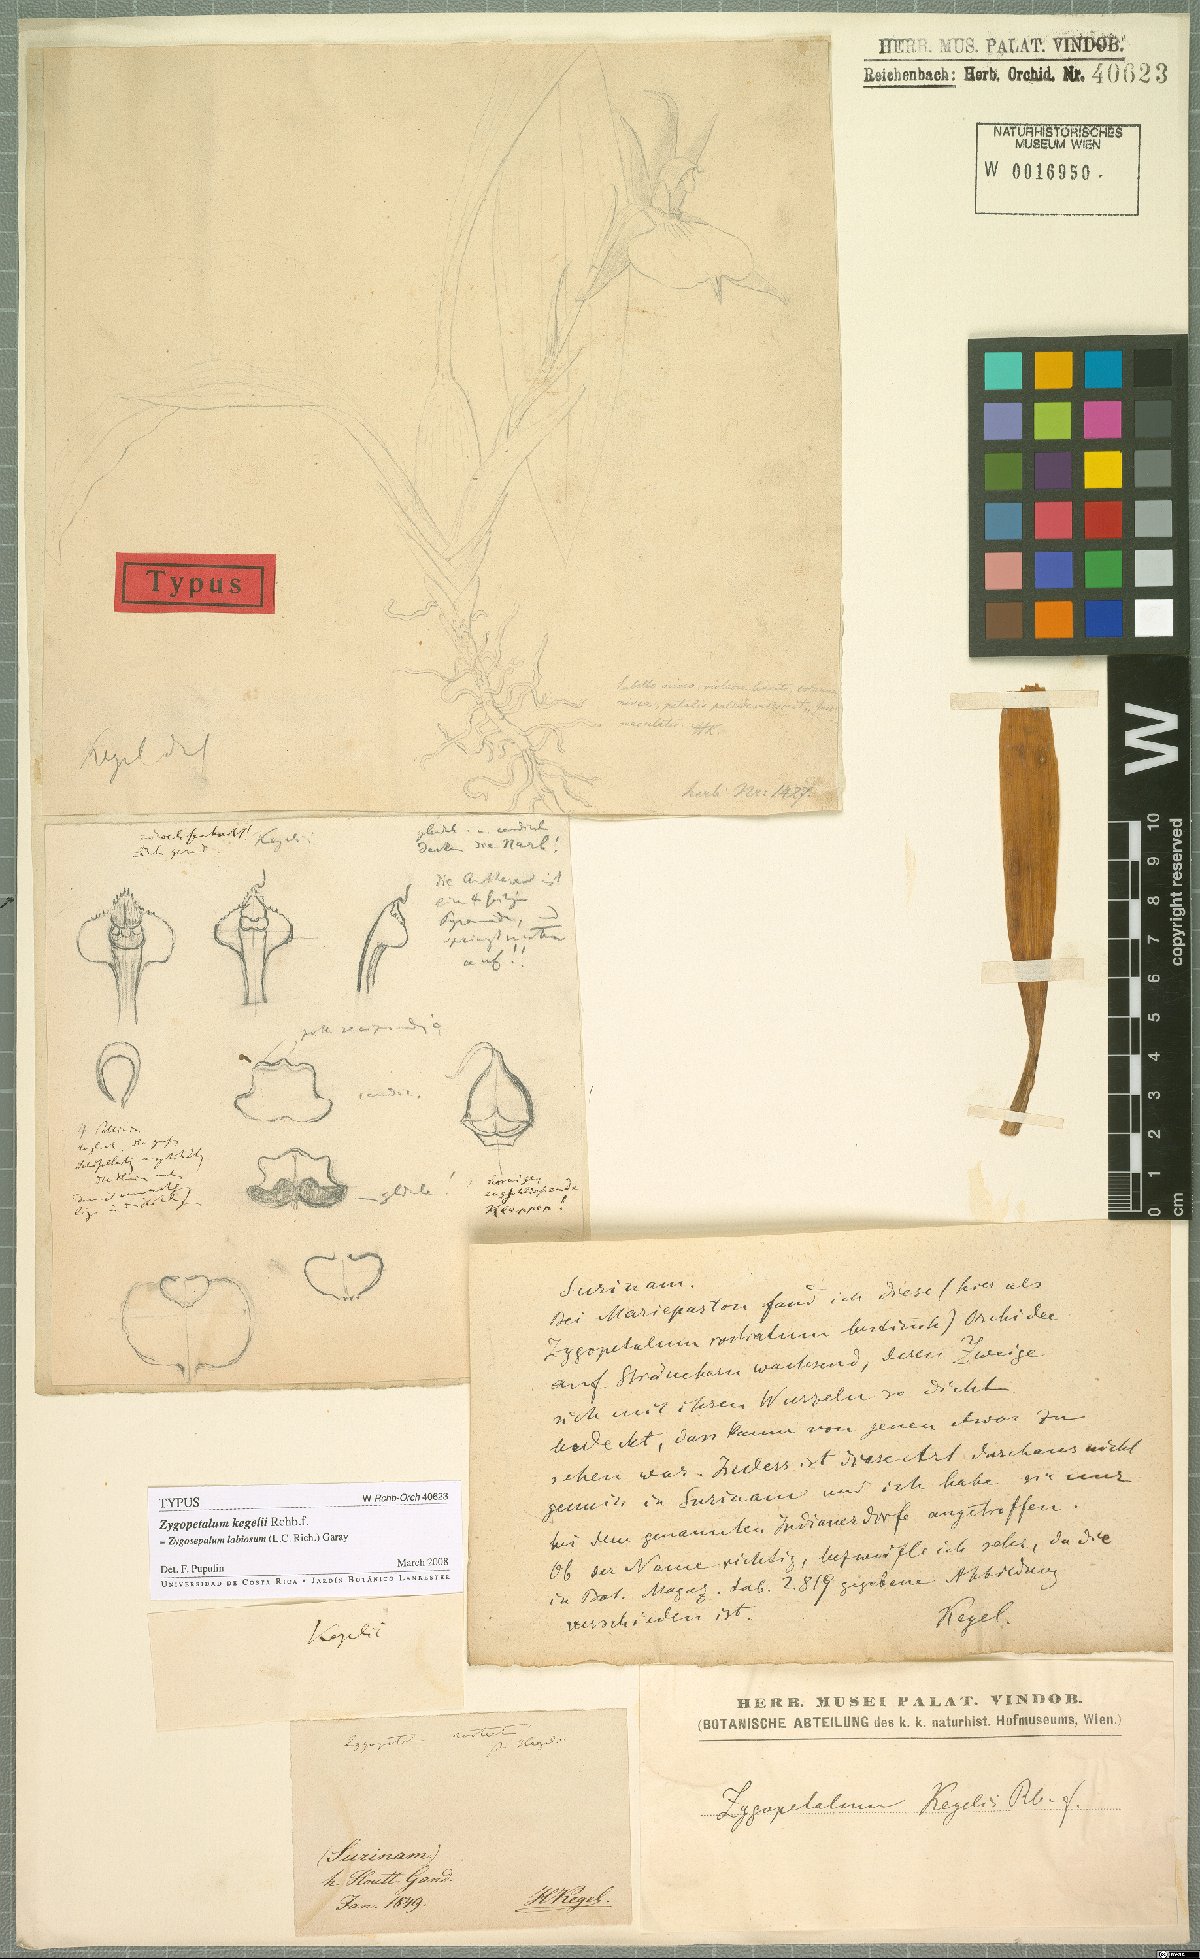 HERB. MUS. PALAT. VINDOB.
Reichenbach: Herb. Orchid. Nr. 40623
NATURHISTORISCHES
MUSEUM WIEN
W 0016950.
Typus
Kegel del
HK.
herb. Nr. 1427.
Kegeli
decken die Narb!
Die Anthere ist
eine 4 seitige
Pyramide,
springt
auf!!
Klappen!
W
0 1 2 3 4 5 6 7 8 9 10
cm
copyright reserved
Surinam.
Bei Mariepaston fand ich diese (hier als
Zygopetalum rostratum bestimmt) Orchidee
auf Sträuchern wachsend, deren Zweige
sich mit ihren Wurzeln so dicht
bedeckt, dass kaum von jenen etwas zu
sehen war. Indess ist diese Art durchaus nicht
gemein in Surinam und ich habe sie nur
bei dem genannten Indianerdorfe angetroffen.
Ob der Name richtig, bezweifle ich sehr, da die
in Bot. Magaz. tab. 2819 gegebene Abbildung
verschieden ist.
Kegel.
TYPUS W Rchb-Orch 40623
Zygopetalum kegelii Rchb.f.
= Zygosepalum labiosum (L.C. Rich.) Garay
Det. F. Pupulin March 2008
UNIVERSIDAD DE COSTA RICA • JARDÍN BOTÁNICO LANKESTER
Kegelii
(Surinam)
h. Houtt. Gand.
Jan. 1849.
HKegel.
HERB. MUSEI PALAT. VINDOB.
(BOTANISCHE ABTEILUNG des k. k. naturhist. Hofmuseums, Wien.)
Zygopetalum Kegelii Rb. f.